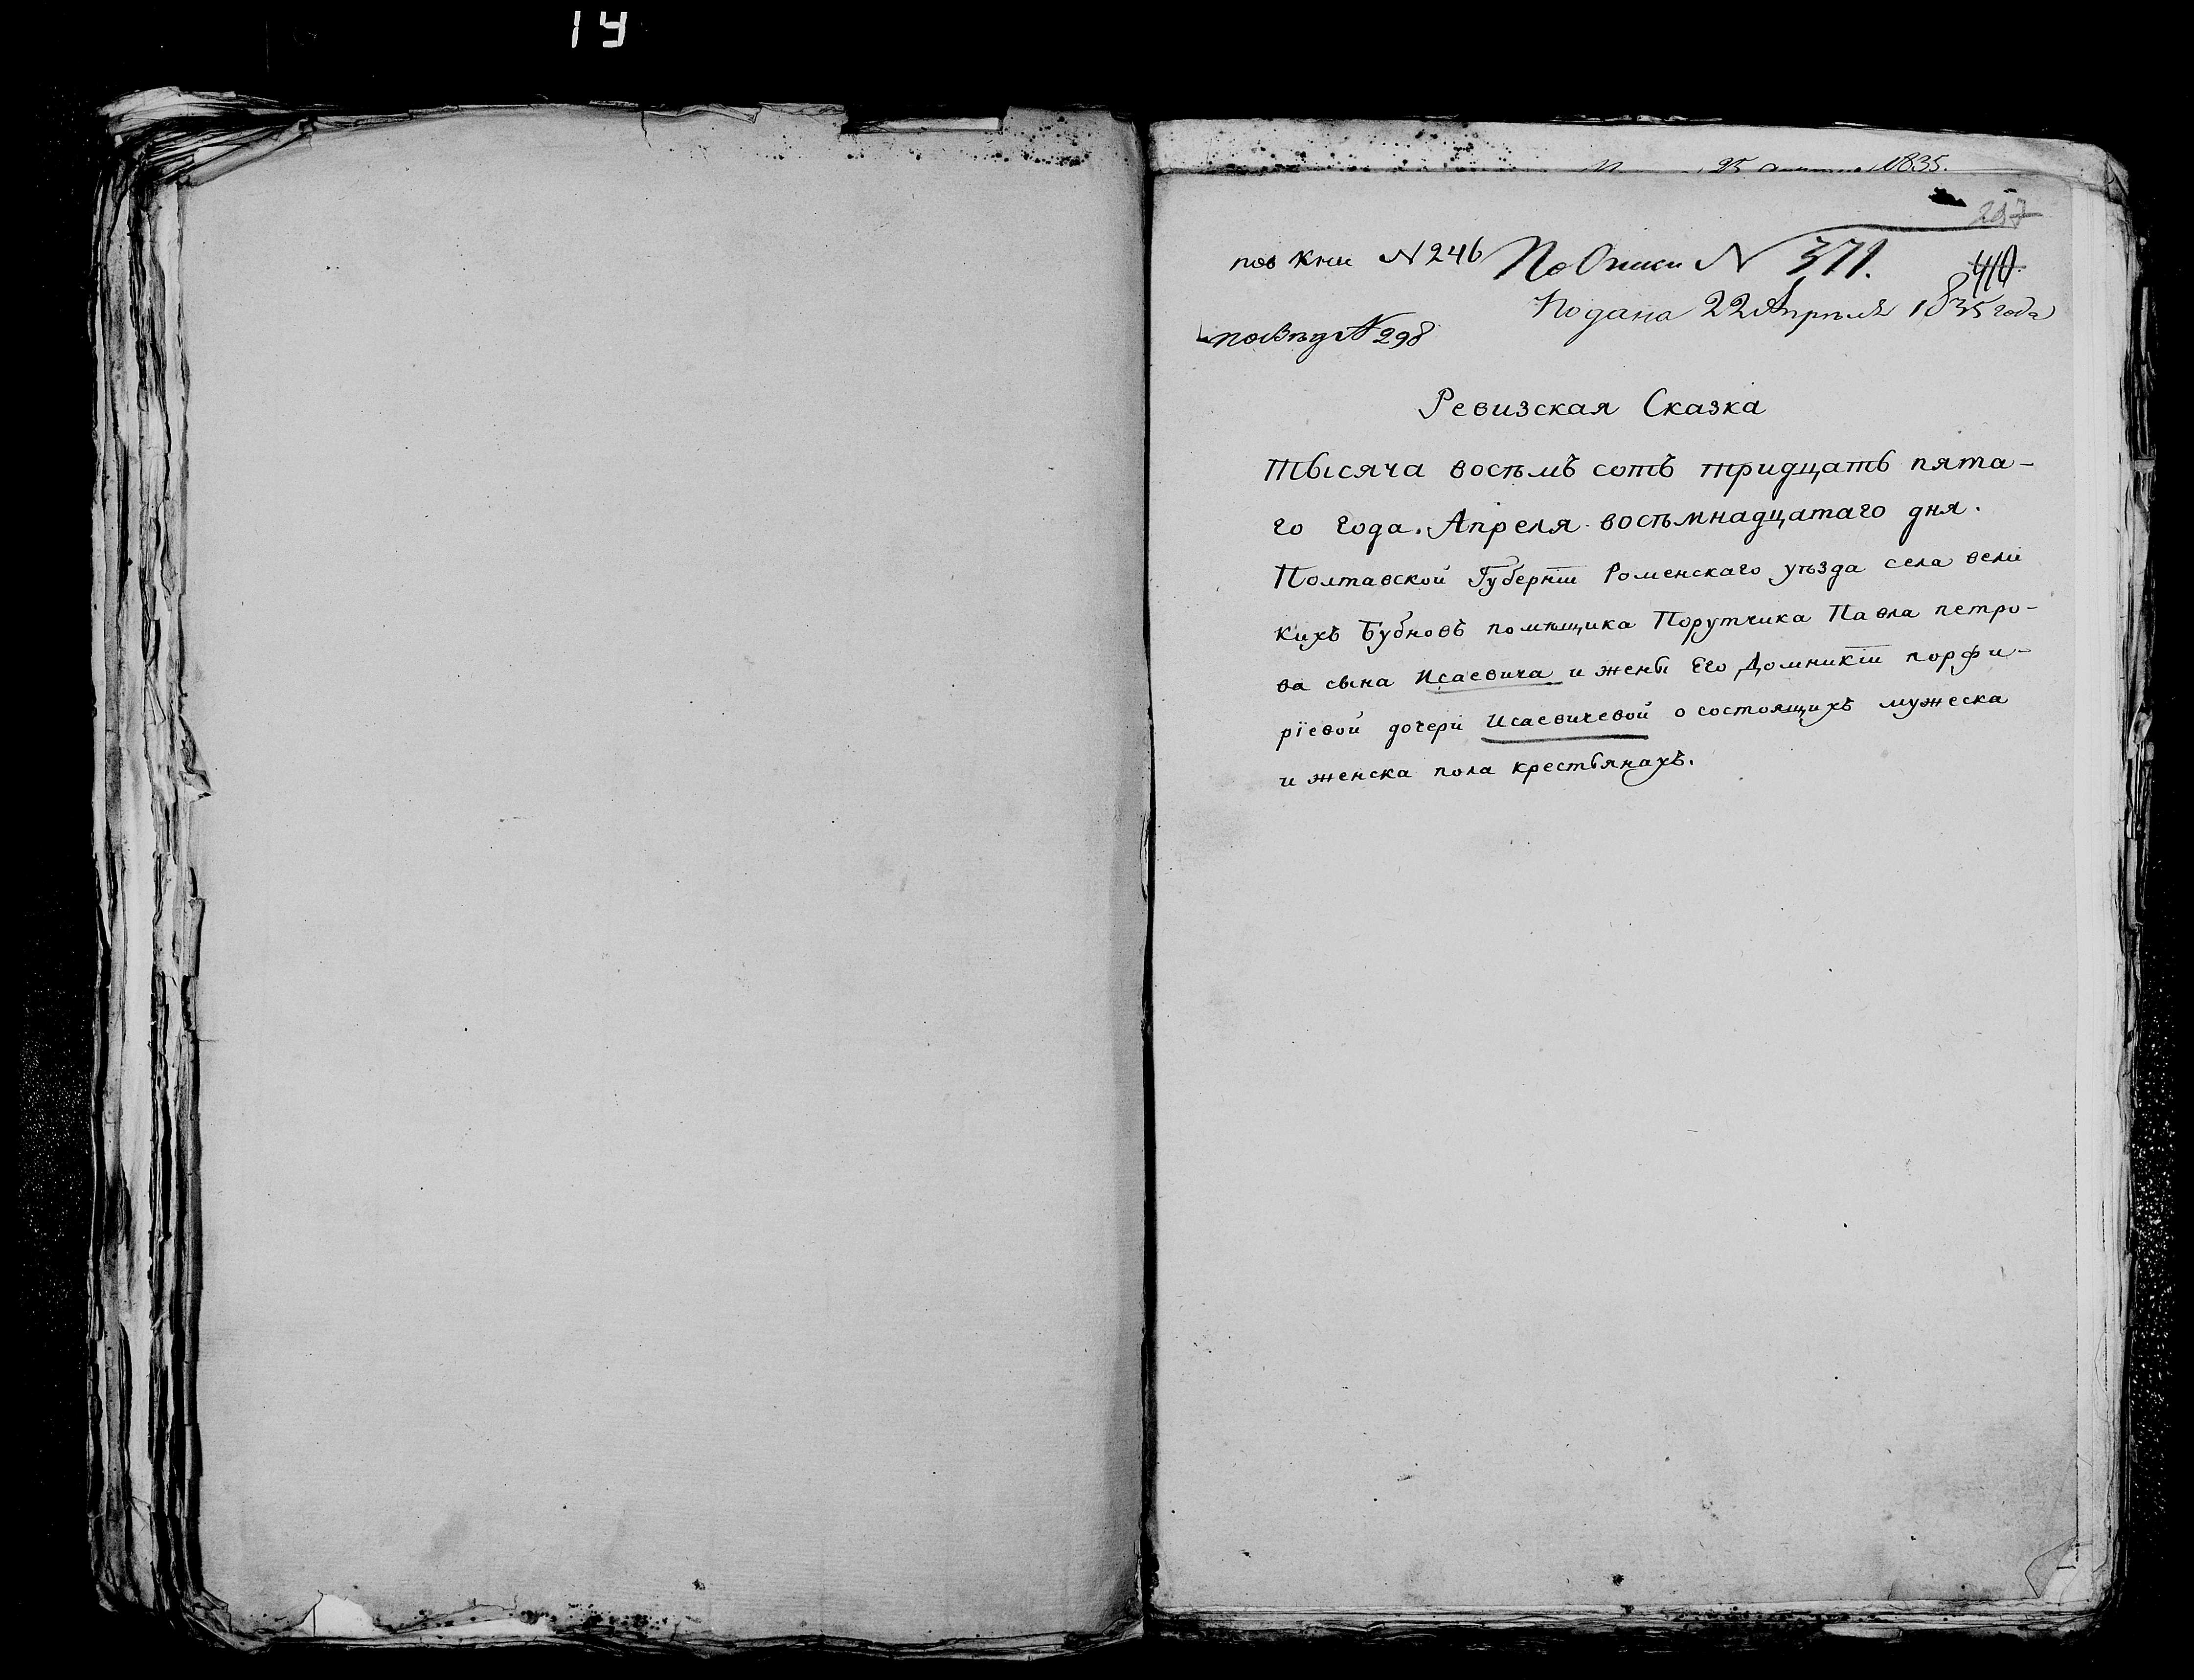 14
25 1835.
217
по Кни N 246 По Описи N 371.
410
Подана 22 Апреля 1835 года
по Вѣд N 298
Ревизская Сказка
Тысяча восѣмъ сотъ тридцать пята-
го года. Апреля восѣмнадцатаго дня.
Полтавской Губерніи Роменскаго уѣзда села вели
кихъ Бубновъ помѣщика Порутчика Павла петро-
ва сына Исаевича и жены Его Домникіи порфи-
ріевой дочери Исаевичевой о состоящихъ мужеска
и женска пола крестьянахъ.